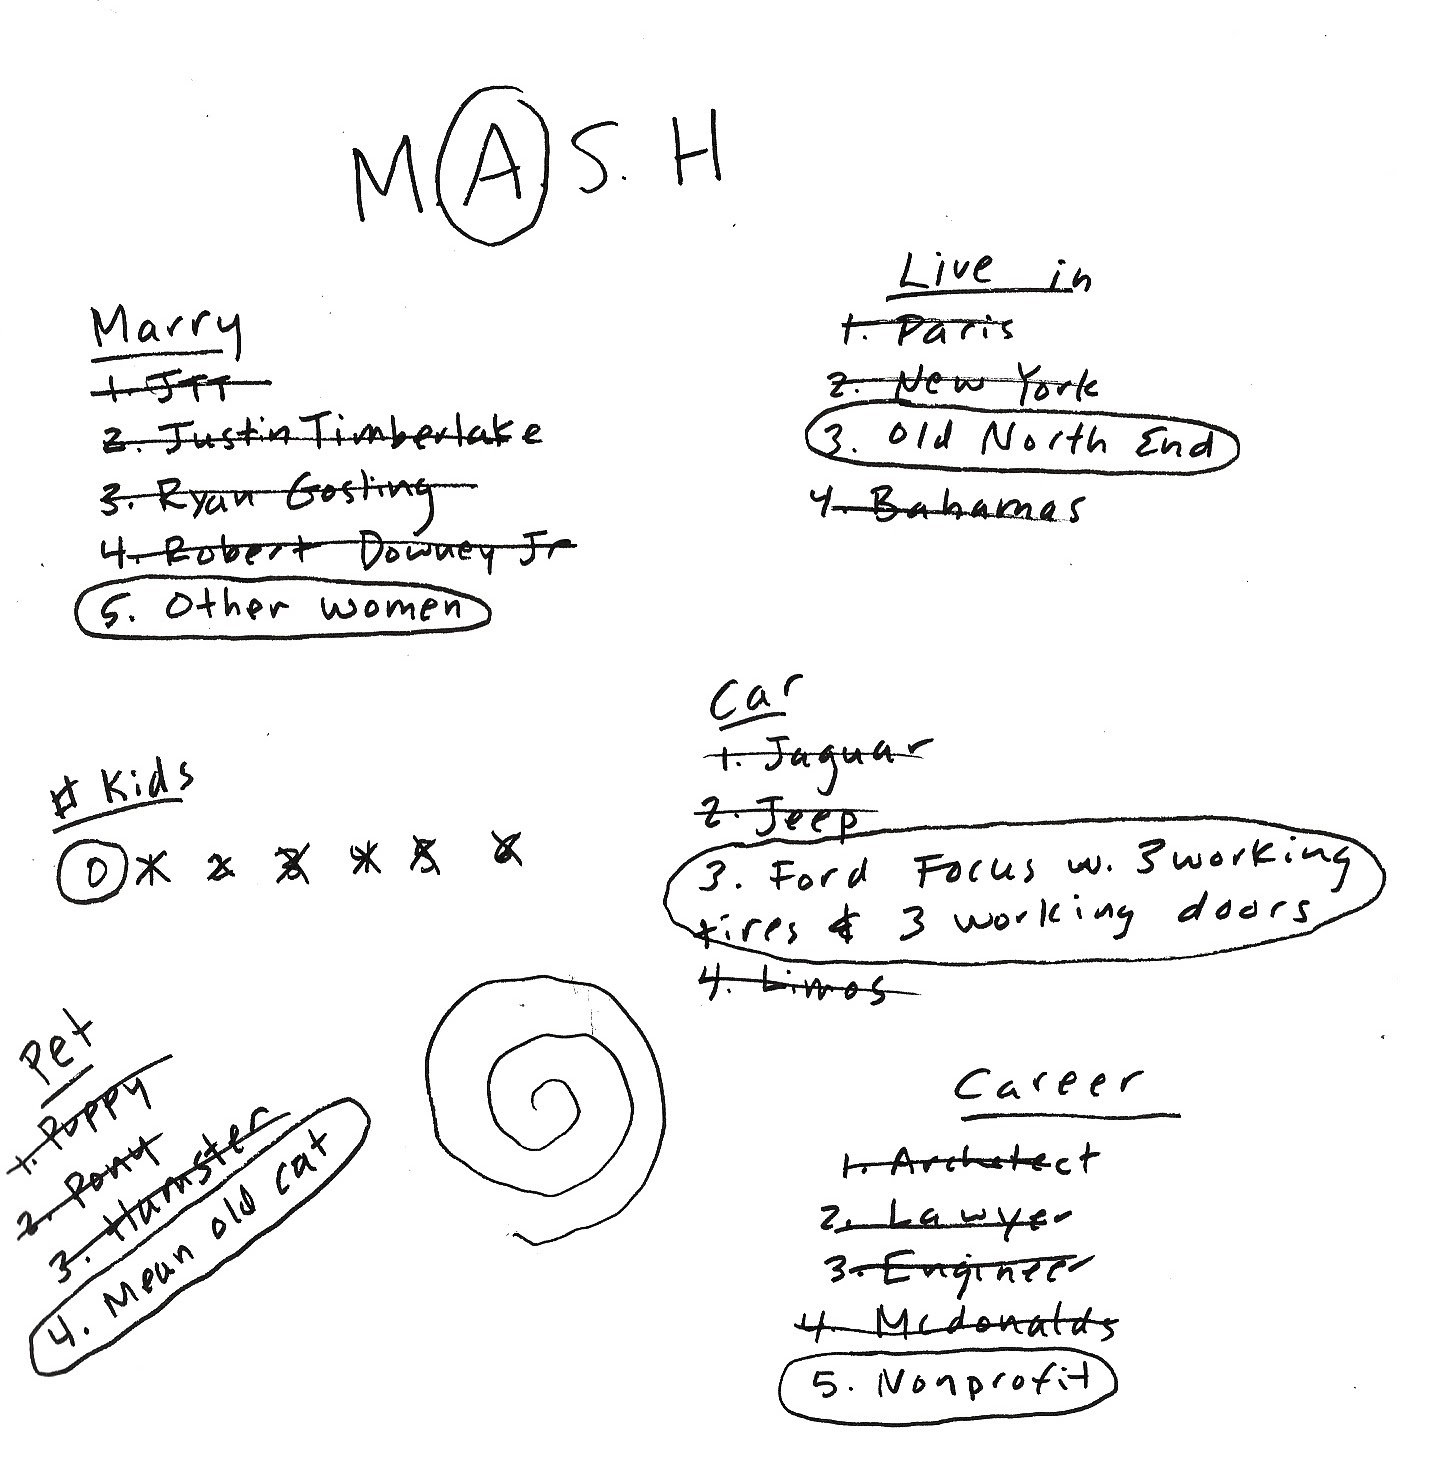 M.A.S.H
Marry
1. JTT
2. Justin Timberlake
3. Ryan Gosling
4. Robert Downey Jr
5. Other women
Live in
1. Paris
2. New York
3. Old North End
4. Bahamas
# Kids
0 1 2 3 4 5 6
Car
1. Jaguar
2. Jeep
3. Ford Focus w. 3 working
tires & 3 working doors
4. Limos
Pet
1. Puppy
2. Pony
3. Hamster
4. Mean old cat
Career
1. Architect
2. Lawyer
3. Engineer
4. Mcdonalds
5. Nonprofit